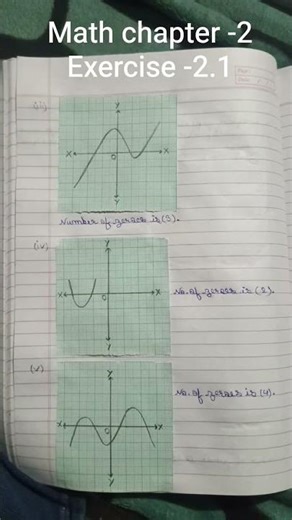 Math chapter -2
Exercise -2.1
(iii)
Y
X X
O
Y
Number of zeroes is (3).
(iv)
Y
X O X
Y
No. of zeroes is (2).
(v)
Y
X O X
Y
No. of zeroes is (4).